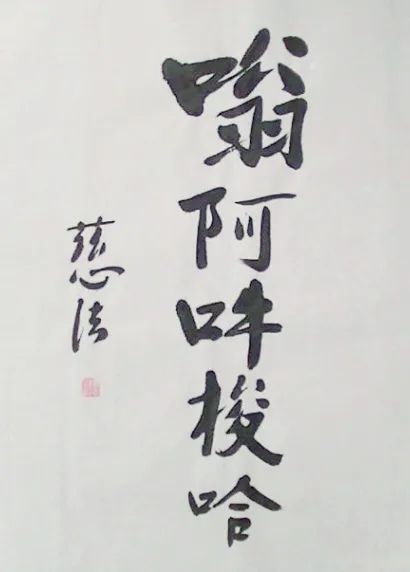 嗡阿吽梭哈
慈法